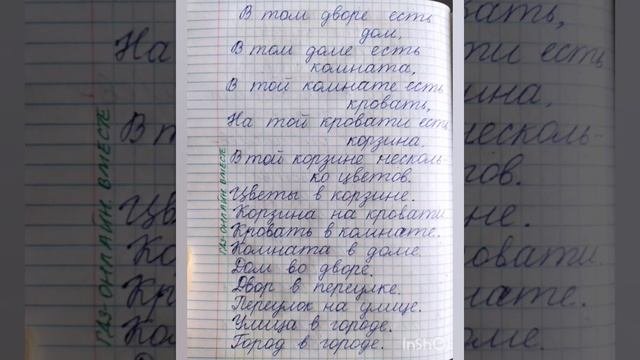 В том дворе есть
дом.
В том доме есть
комната,
В той комнате есть
кровать,
На той кровати есть
корзина.
В той корзине несколь-
ко цветов.
Цветы в корзине.
Корзина на кровати.
Кровать в комнате.
Комната в доме.
Дом во дворе.
Двор в переулке.
Переулок на улице.
Улица в городе.
Город в городе.
ГДЗ-ОНЛАЙН. ВМЕСТЕ
InShO